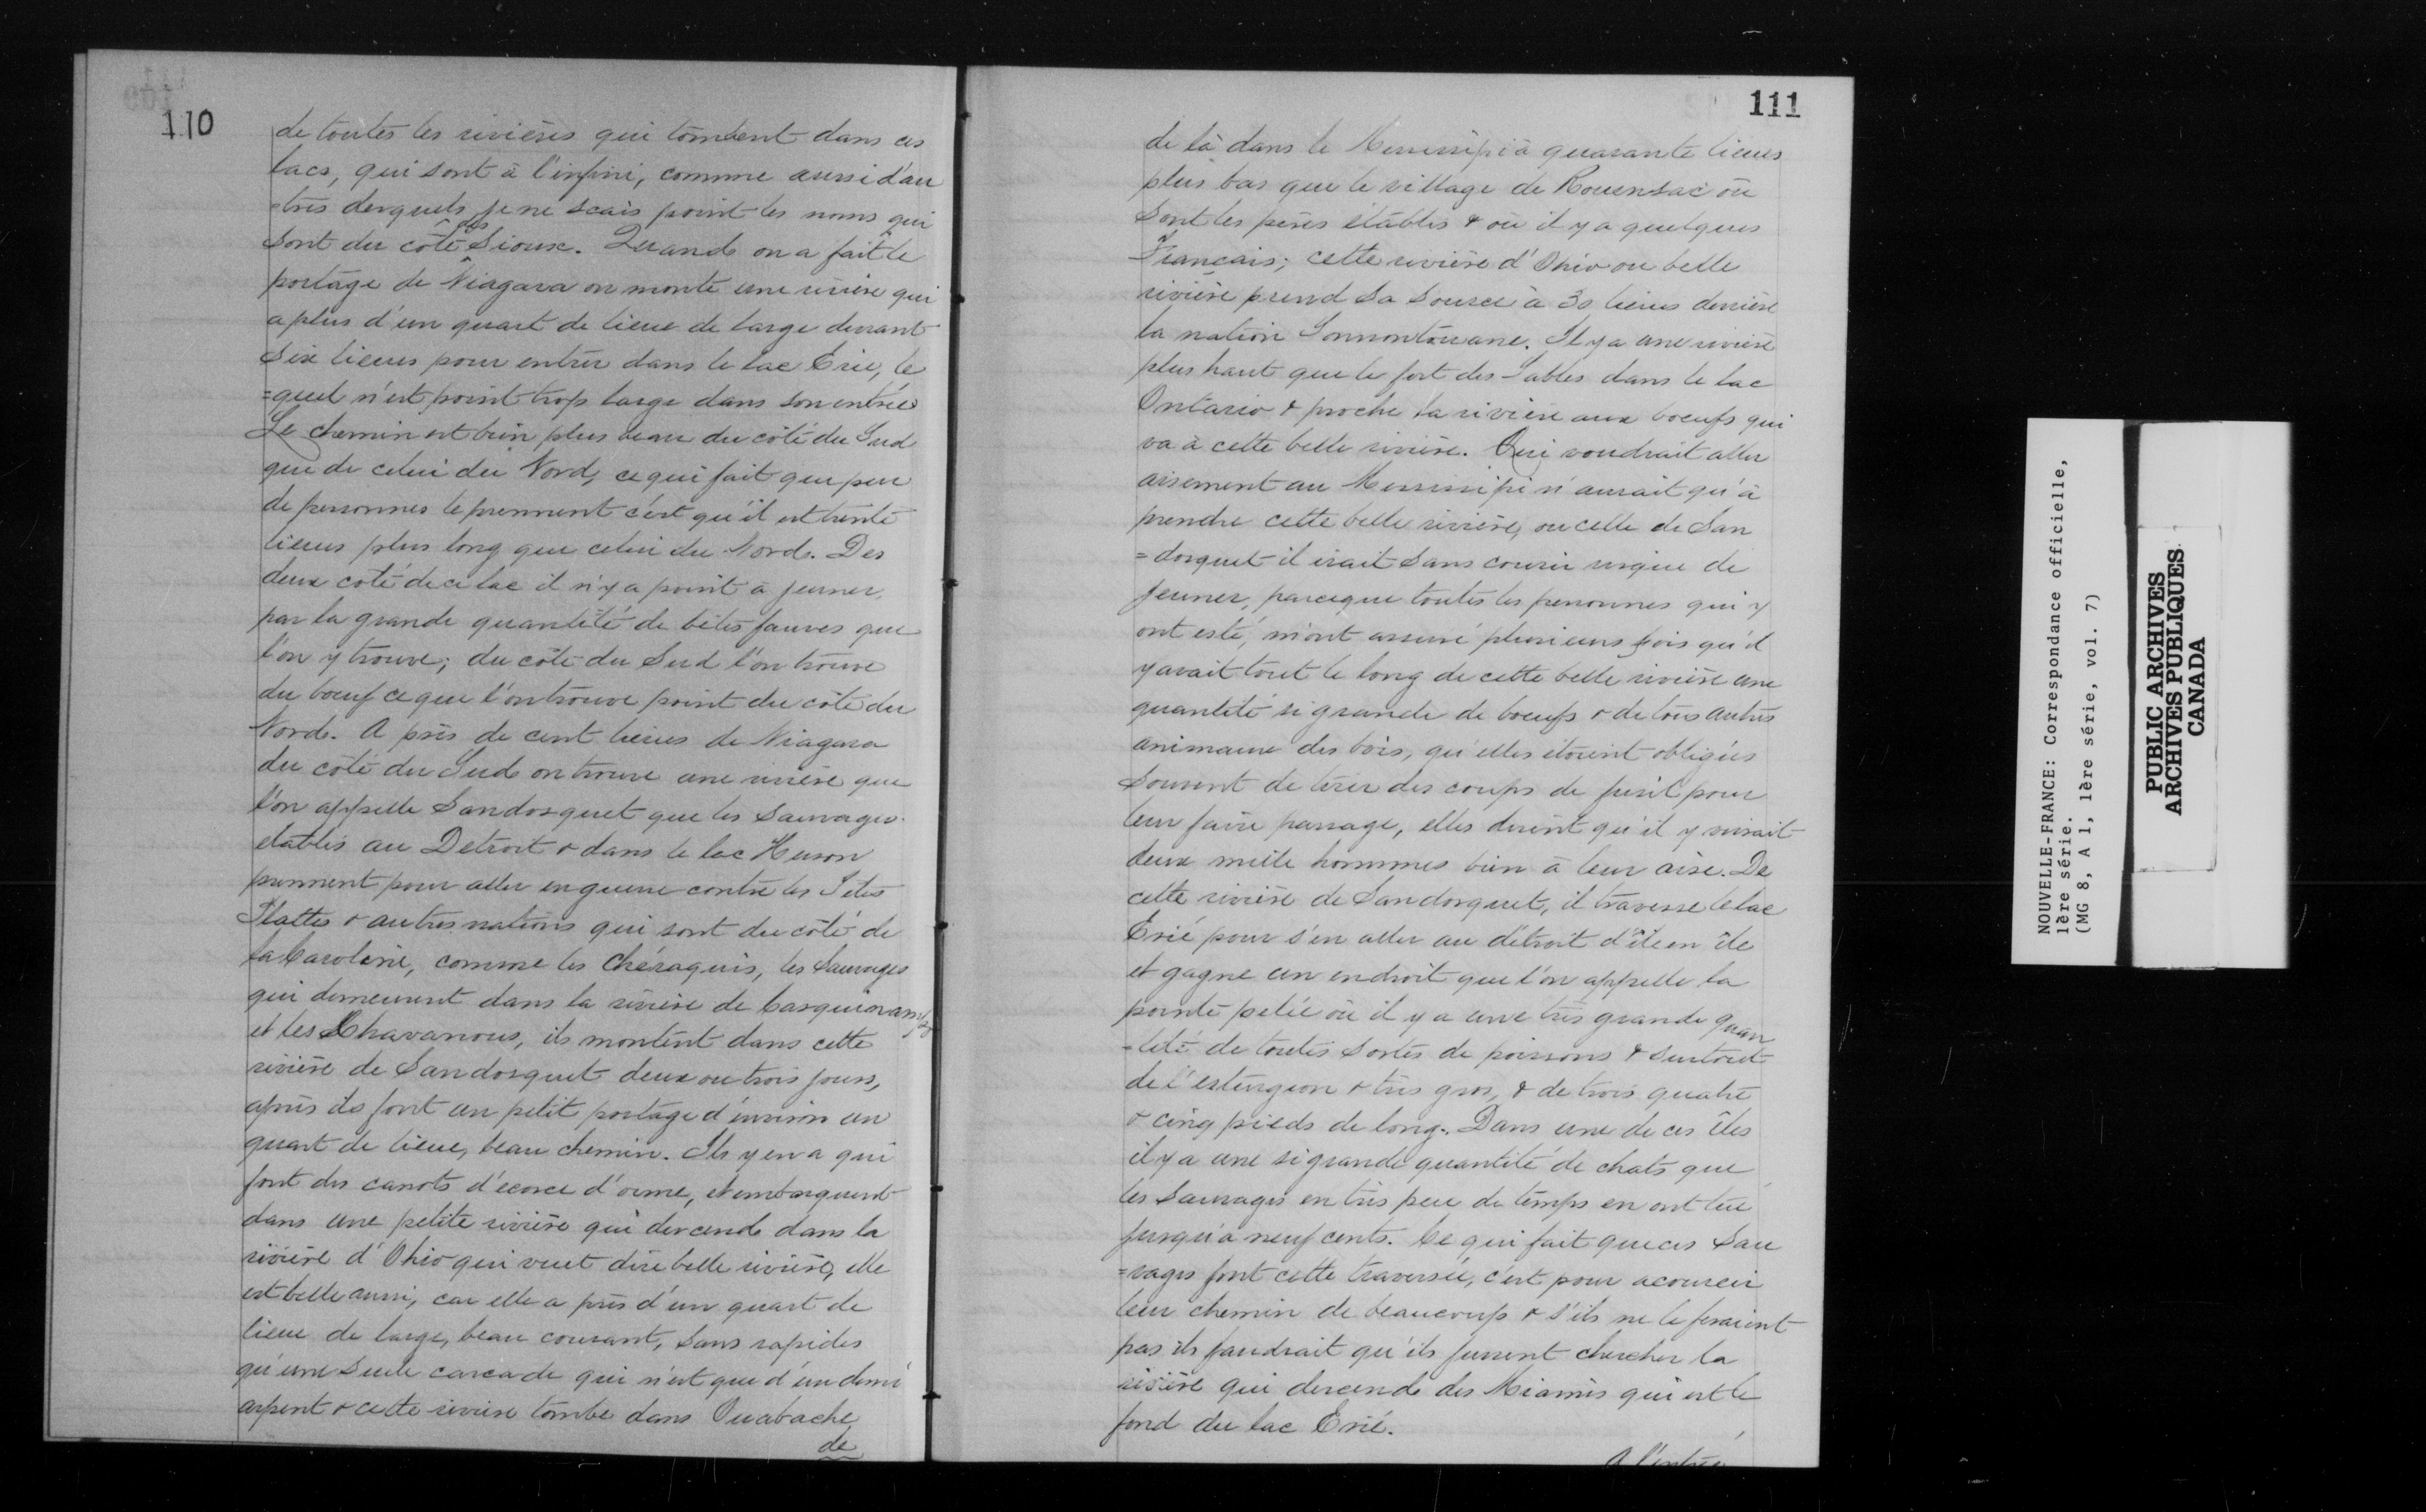 110
de toutes les rivières qui tombent dans ces
lacs, qui sont à l'infini, comme aussi d'au
=tres desquels je ne scais point les noms qui
sont du côté des Sioux. Quand on a fait le
portage de Niagara on monte une rivière qui
a plus d'un quart de lieue de large durant
six lieues pour entrer dans le lac Erié, le
=quel n'est point trop large dans son entrée
Le chemin est bien plus beau du côté du Sud
que de celui du Nord, ce qui fait que peu
de personnes le prennent c'est qu'il est trente
lieues plus long que celui du Nord. Des
deux coté de ce lac il n'y a point à jeuner,
par la grande quantité de bêtes fauves que
l'on y trouve; du côté du Sud l'on trouve
du boeuf ce que l'on trouve point du côté du
Nord. A près de cent lieues de Niagara
du côté du Sud on trouve une rivière que
l'on appelle Sandosquet que les Sauvages
etablis au Detroit & dans le lac Huron
prennent pour aller en guerre contre les Têtes
Plattes & autres nations qui sont du côté de
la Caroline, comme les Cheraquis, les Sauvages
qui demeurent dans la rivière de
et les Chavanous, ils montent dans cette
rivière de Sandosquet deux ou trois jours,
après ils font un petit portage d'environ un
quart de lieue, beau chemin. Ils y en a qui
font des canots d'écorce d'orme, et embarquent
dans une petite rivière qui descend dans la
rivière d'Ohio qui veut dire belle rivière, elle
est belle aussi, car elle a près d'un quart de
lieue de large, beau courant, sans rapides
qu'une seule cascade qui n'est que d'un demi
arpent & cette rivière tombe dans Ouabache
de
111
de là dans le Mississipi à quarante lieues
plus bas que le village de Rouensac où
sont les pères établis & où il y a quelques
Français; cette rivière d'Ohio ou belle
rivière prend sa source à 30 lieues derrière
la nation Sonnontouane. Il y a une rivière
plus haut que le fort des Sables dans le lac
Ontario & proche la rivière aux boeufs qui
va à cette belle rivière. Qui voudrait aller
aisement au Mississipi n'aurait qu'à
prendre cette belle rivière, ou celle de San
=dosquet il irait sans courir risque de
jeuner, parceque toutes les personnes qui y
ont esté, m'ont assuré plusieurs fois qu'il
y avait tout le long de cette belle rivière une
quantité si grande de boeufs & de tous autres
animaux des bois, qu'elles étoient obligées
souvent de tirer des coups de fusil pour
leur faire passage, elles disent qu'il y vivrait
deux mille hommes bien à leur aise. De
cette rivière de Sandosquet, il traverse le lac
Erié pour s'en aller au détroit d'île en île
et gagne un endroit que l'on appelle la
pointe pelée où il y a une très grande quan
=tité de toutes sortes de poissons & surtout
de l'esturgeon & très gros, & de trois quatre
& cinq pieds de long. Dans une de ces îles
il y a une si grande quantité de chats que
les Sauvages en très peu de temps en ont tué
jusqu'à neuf cents. Ce qui fait que ces Sau
=vages font cette traversée, c'est pour acourcir
leur chemin de beaucoup & s'ils ne le feraient
pas ils faudrait qu'ils fussent chercher la
rivière qui descend des Miamis qui est le
fond du lac Erié.
A l'entrée
NOUVELLE-FRANCE: Correspondance officielle,
1ère série.
(MG 8, A 1, 1ère série, vol. 7)
PUBLIC ARCHIVES
ARCHIVES PUBLIQUES
CANADA